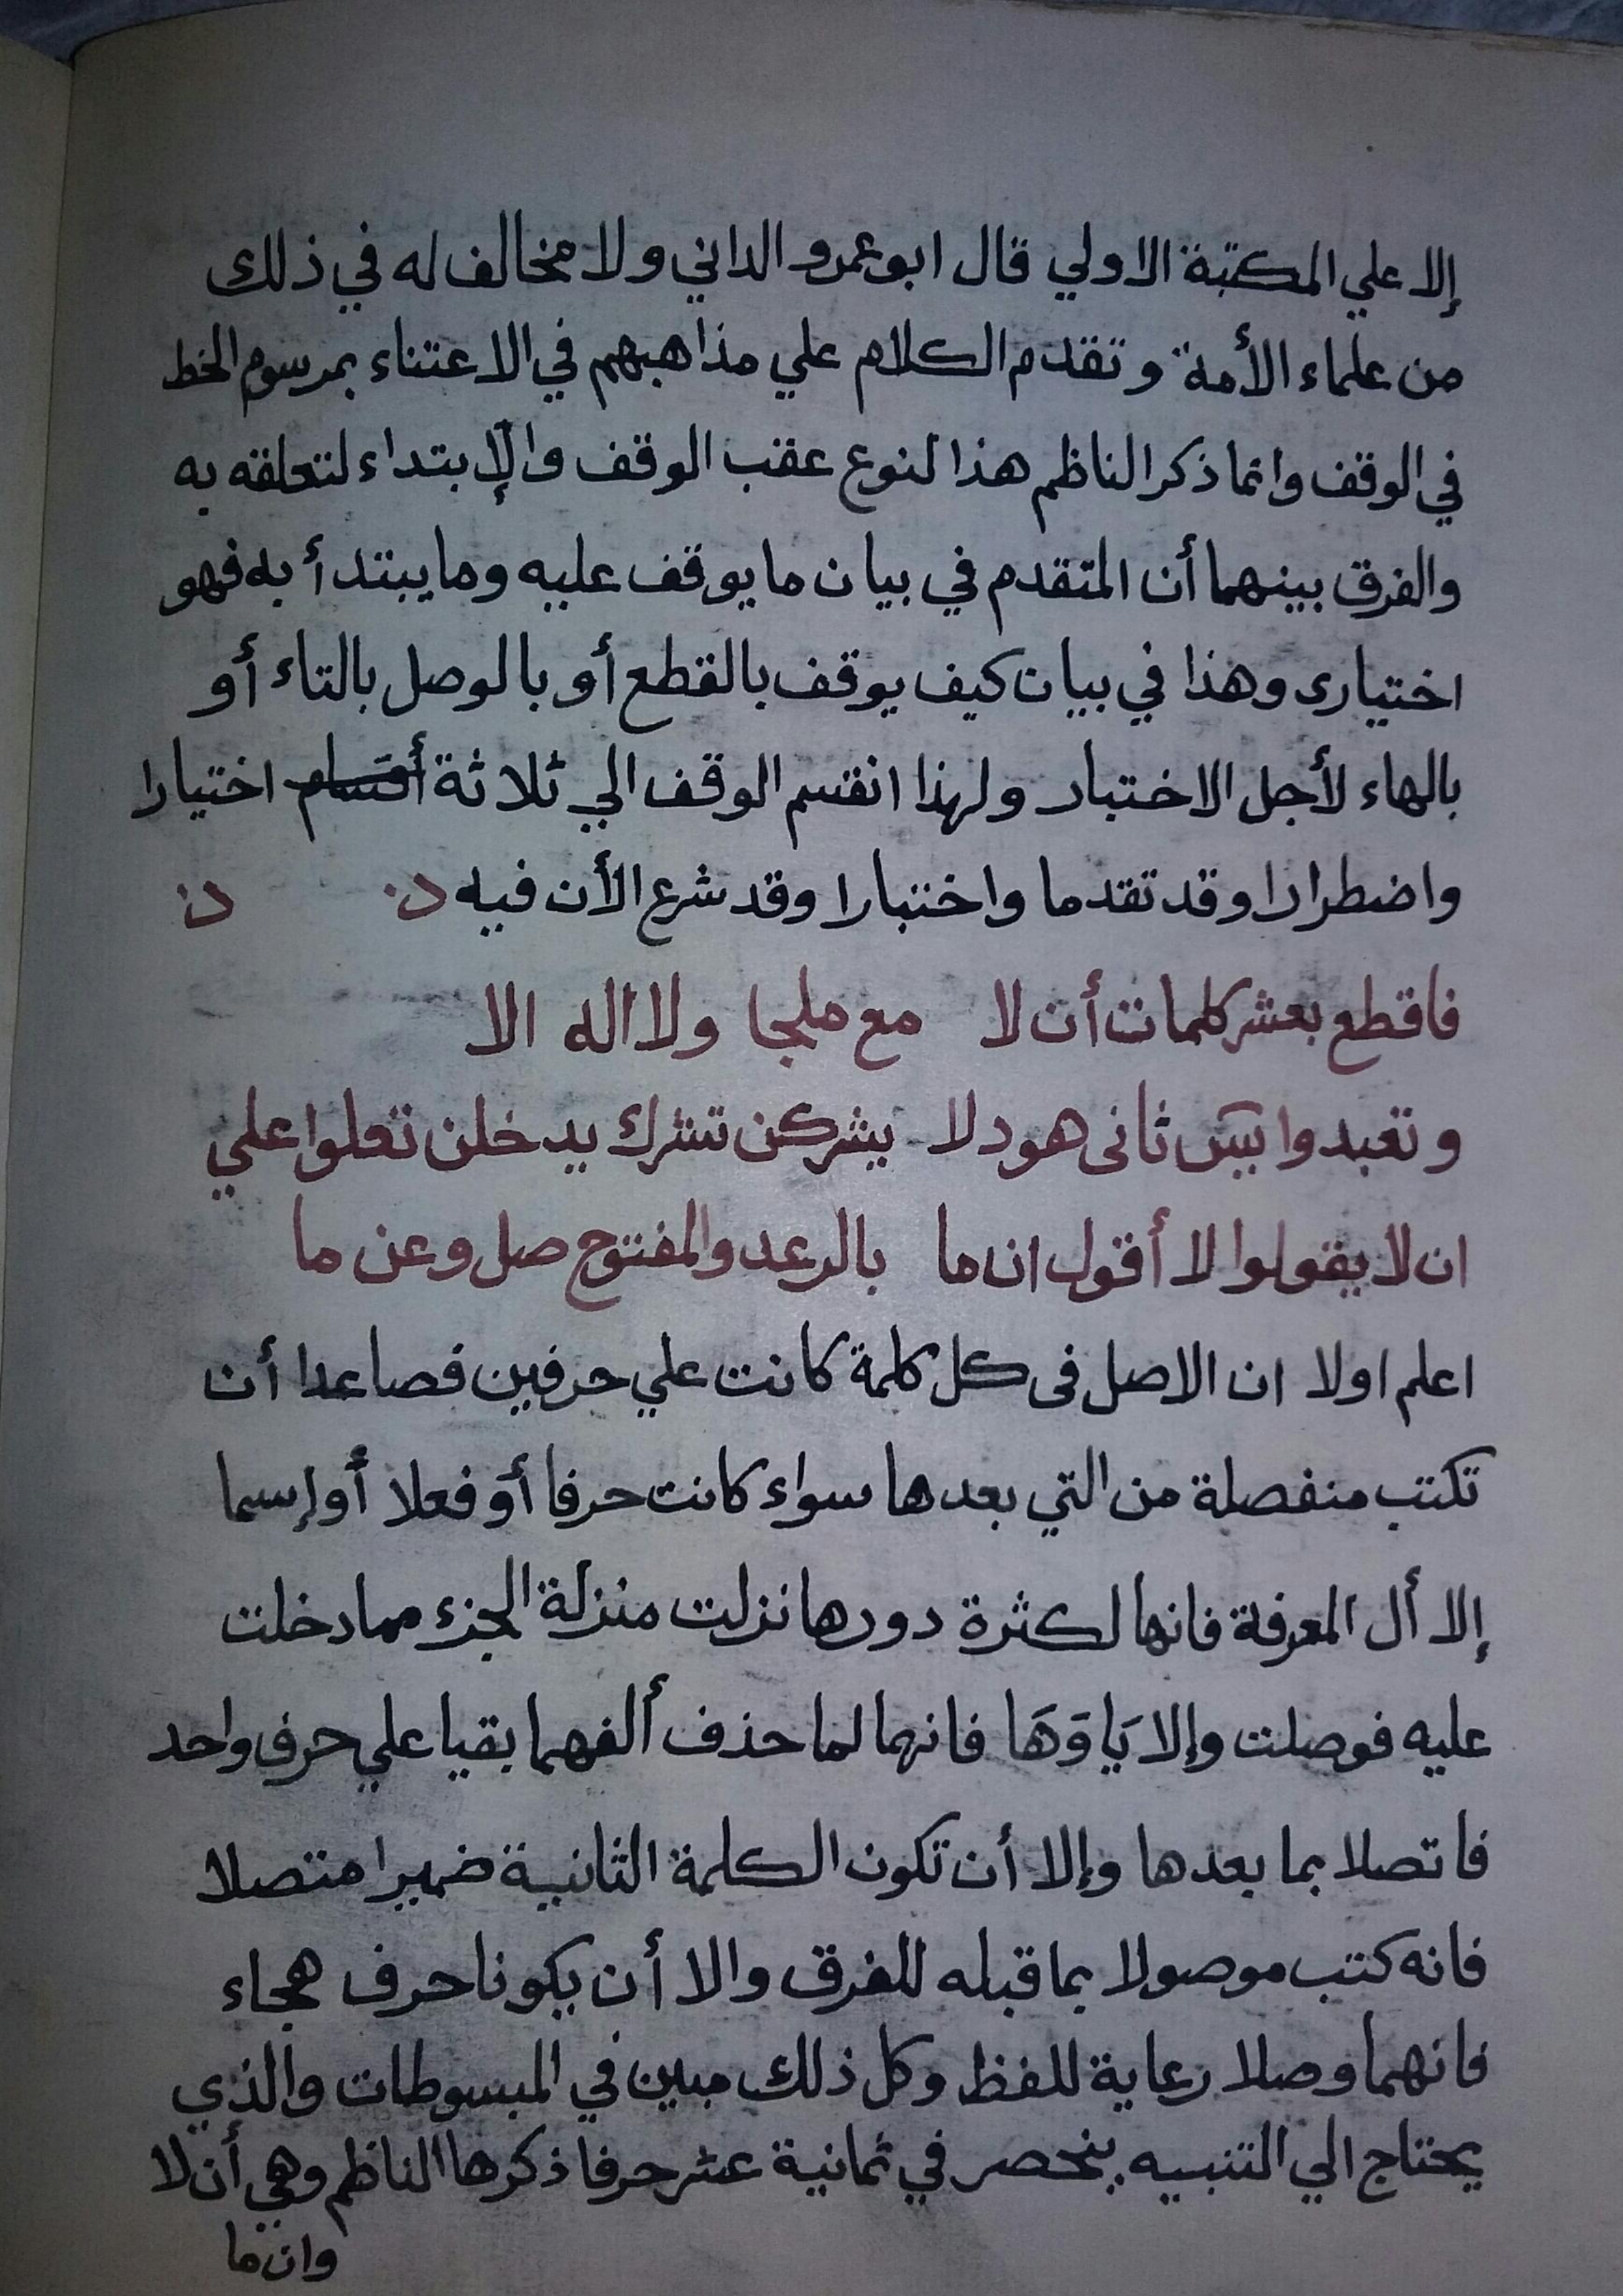 إلا علي المكتبة الاولي قال ابوعمرو الداني ولا مخالف له في ذلك
من علماء الأمة وتقدم الكلام علي مذاهبهم في الاعتناء بمرسوم الخط
في الوقف وانما ذكر الناظم هذا لنوع عقب الوقف والإبتداء لتعلقه به
والفرق بينهما أن المتقدم في بيان ما يوقف عليه وما يبتدأ به فهو
اختيارى وهذا في بيان كيف يوقف بالقطع أو بالوصل بالتاء أو
بالهاء لأجل الاختبار ولهذا انقسم الوقف الي ثلاثة أقسام اختيارا
واضطرارا وقد تقدما واختبارا وقد شرع الأن فيه
فاقطع بعشر كلمات أن لا مع ملجا ولا اله الا
وتعبدوا يس ثانى هود لا يشركن تشرك يدخلن تعلوا علي
ان لا يقولوا لا أقول ان ما بالرعد والمفتوح صل وعن ما
اعلم اولا ان الاصل فى كل كلمة كانت علي حرفين فصاعدا أن
تكتب منفصلة من التي بعدها سواء كانت حرفا أو فعلا أو إسما
إلا أل المعرفة فانها لكثرة دورها نزلت منزلة الجزء مما دخلت
عليه فوصلت وإلا يَا وَهَا فانهما لما حذف ألفهما بقيا علي حرف واحد
فاتصلا بما بعدها وإلا أن تكون الكلمة الثانية ضميرا متصلا
فانه كتب موصولا بما قبله للفرق والا أن يكونا حرف هجاء
فانهما وصلا رعاية للفظ وكل ذلك مبين في المبسوطات والذي
يحتاج الي التنبيه ينحصر في ثمانية عشر حرفا ذكرها الناظم وهي أن لا
وان ما